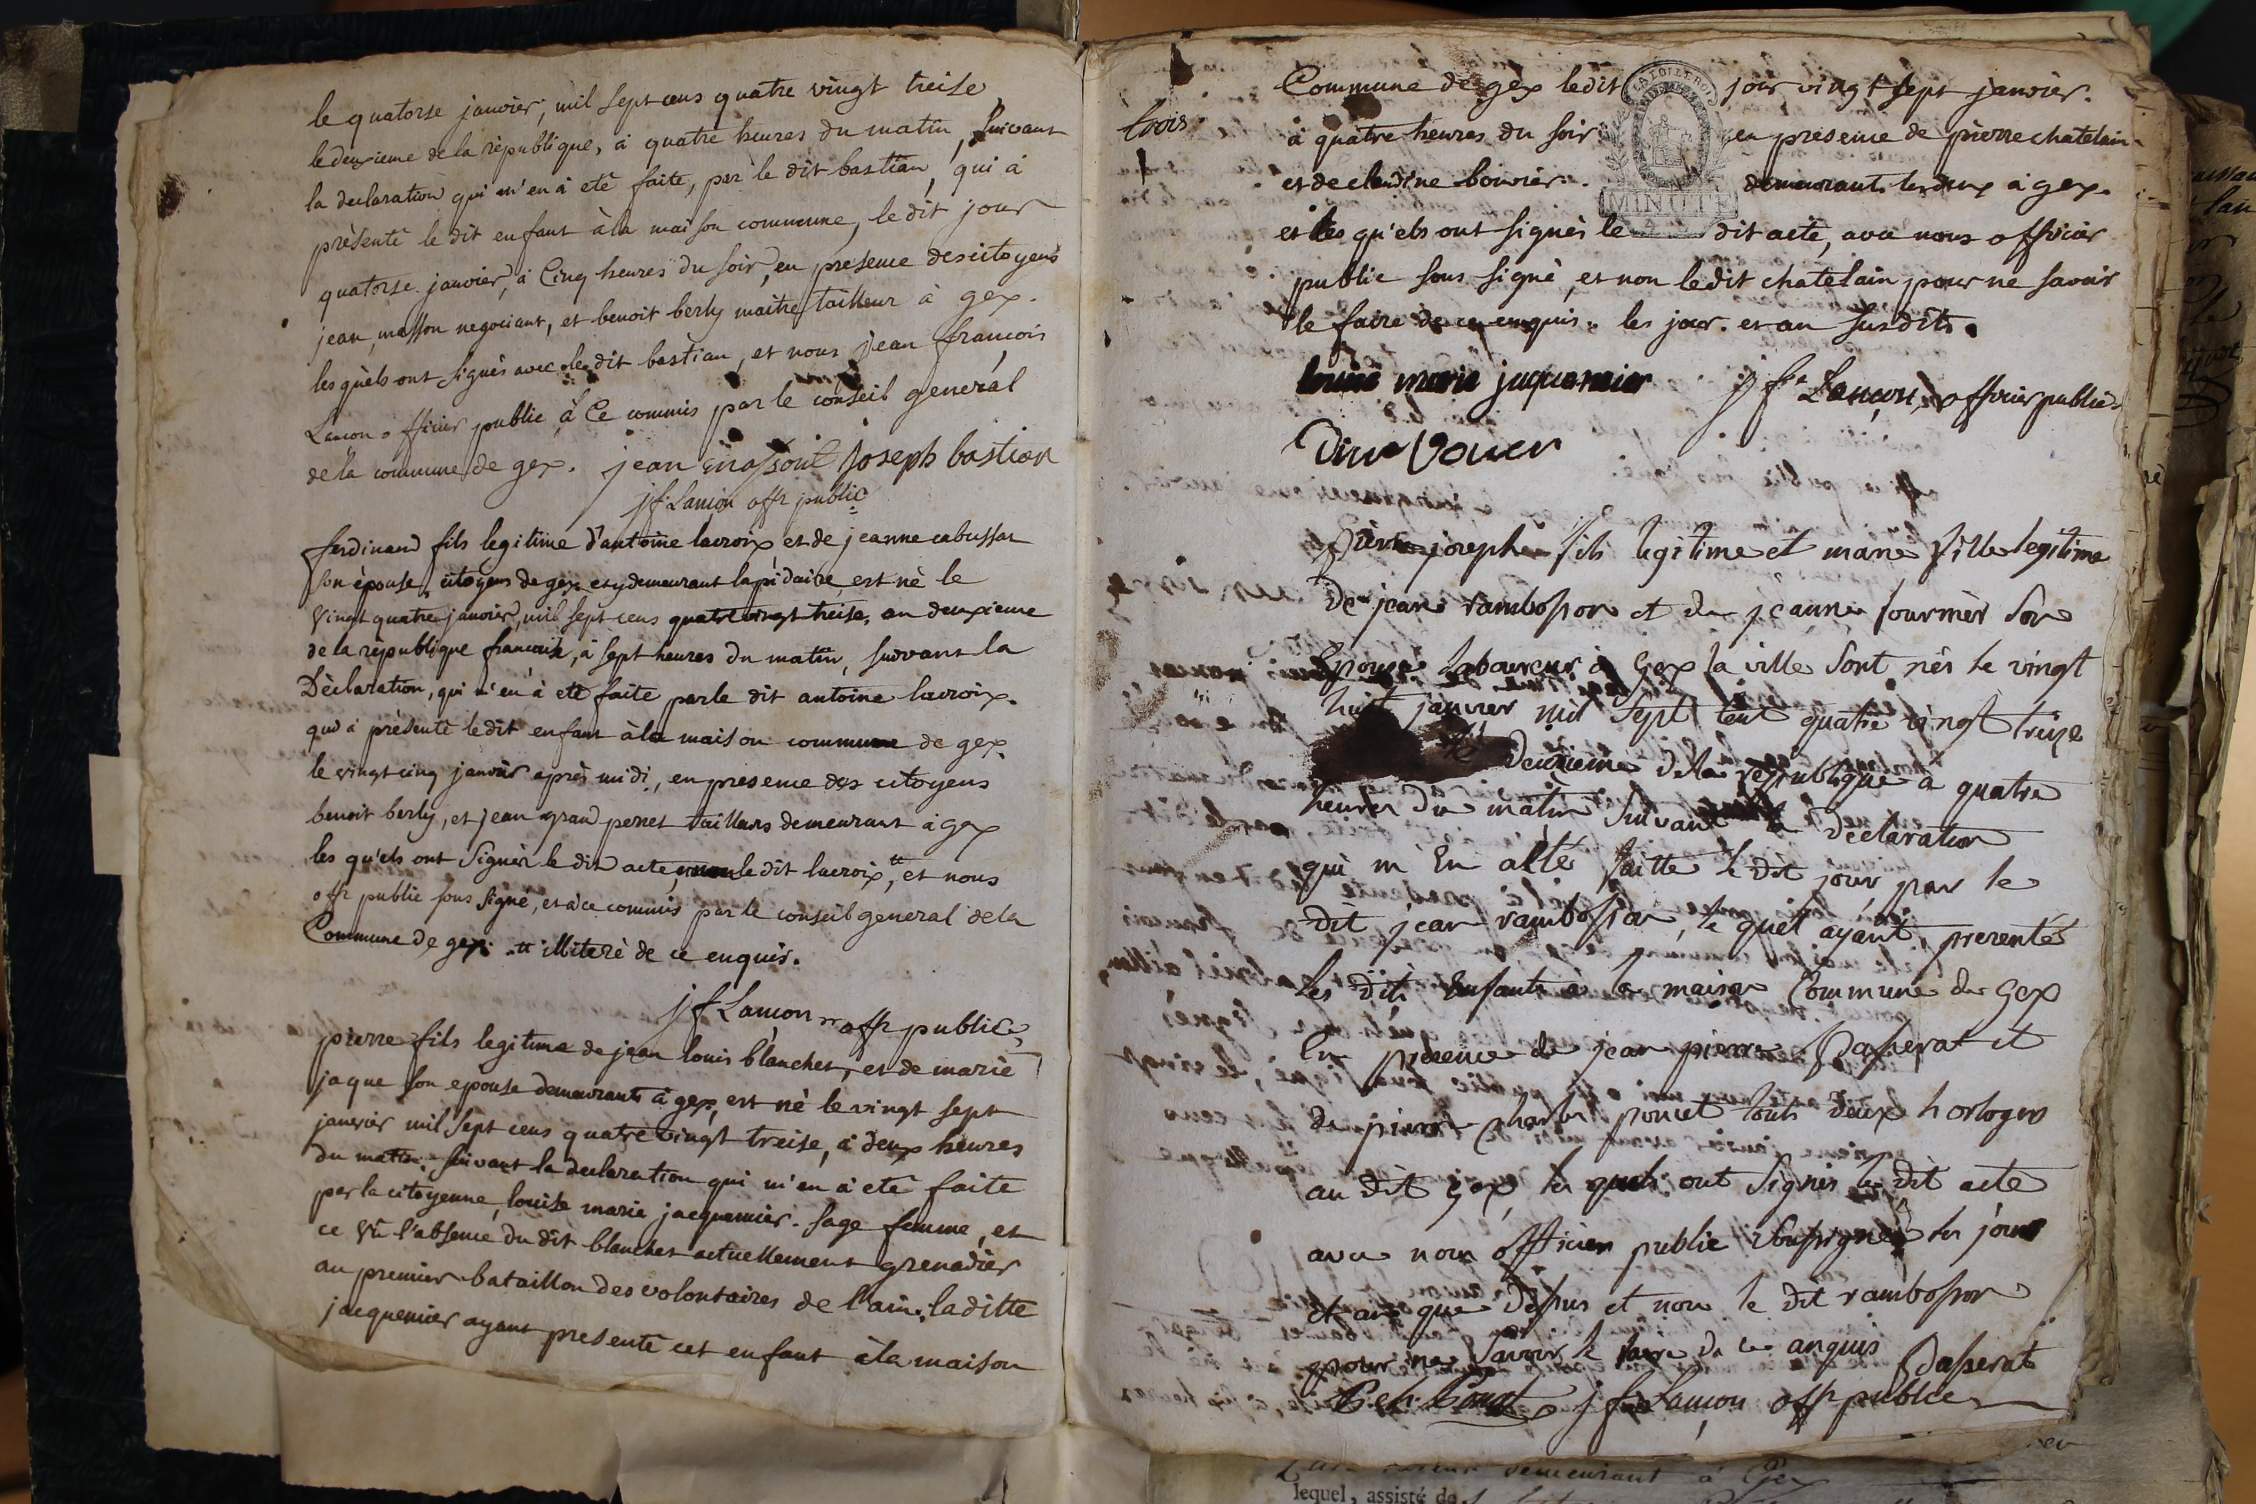 le quatorse janvier, mil sept cens quatre vingt treise,
le deuxieme de la rèpublique, à quatre heures du matin, suivant
la declaration qui m'en à eté faite, par le dit bastian, qui à
prèsenté le dit enfant à la maison commune, le dit jour
quatorse janvier, à Cinq heures du soir, en presence des citoyens
jean, masson negociant, et benoit berly maitre tailleur à gex.
les quèls ont signés avec le dit bastian, et nous jean françois
Lançon officier public, à Ce commis par le conseil general
de la commune de gex. jean massont joseph bastian
jf. Lançon offr public
ferdinand fils legitime d'antoine lacroix et de jeanne cabussat
son èpouse, citoyens de gex et y demeurant lapidaire, est nè le
vingt quatre janvier, mil sept cens quatre vingt treise, an deuxieme
de la rèpublique francoise, à sept heures du matin, suivant la
Dèclaration, qui m'en à eté faite par le dit antoine lacroix.
qui à prèsenté le dit enfant à la maison commune de gex
le vingt cinq janvier après midi, en presence des citoyens
benoit berly, et jean grand perret taillurs demeurant à gex
les qu'els ont Signér le dit acte, non le dit lacroix,tt et nous
offr public sous signé, et à ce commis par le conseil general de la
Commune de gex. .tt illiterè de ce enquis.
jf Lançon offr public
pierre fils legitime de jean louis blanchet, et de marie
jaque son epouse demeurants à gex, est nè le vingt sept
janvier mil sept cens quatre vingt treise, à deux heures
du matin. suivant la declaration qui m'en à eté faite
par la citoyenne, louise marie jacquemier. sage femme, et
ce vû l'absence du dit blanchet actuellement grenadier
au premier bataillon des volontaires de l'ain. la ditte
jacquemier ayant presenté cet enfant à la maison
trois
Commune de gex le dit jour vingt sept janvier.
à quatre heures du soir en prèsence de pierre chatelain
et de clendine bouvier. demeurants les deux à gex.
LA LOI LE ROI
MINUTE
et les qu'els ont signés le dit acte, avec nous officier
public sous signé, et non le dit chatelain pour ne savoir
le faire de ce enquis. les jour. et an susdits.
louise marie juquemier jfs Lançon, officier public
pierre joseph fils legitime et marie fille legitime
De jean rambosson et de jeanne fournier son
Epouse laboureur à Gex la ville sont nés le vingt
huit janvier mil sept cent quatre vingt treize
deuxieme de la republique à quatre
heures du matin suivant la declaration
qui m'En aété faitte le dit jour par le
dit jean rambosson, le quel ayant presentés
les dits Enfants à la maison Commune de Gex
En presence de jean pierre Passerat et
de pierre charle poncet touts deux horlogers
au dit Gex, les quels ont signés le dit acte
avec nous officier public soussigné les jour
et an que dessus et non le dit rambosson
pour ne savoir le faire de ce anquis Passerat
jf Lançon offr public
lequel, assisté de